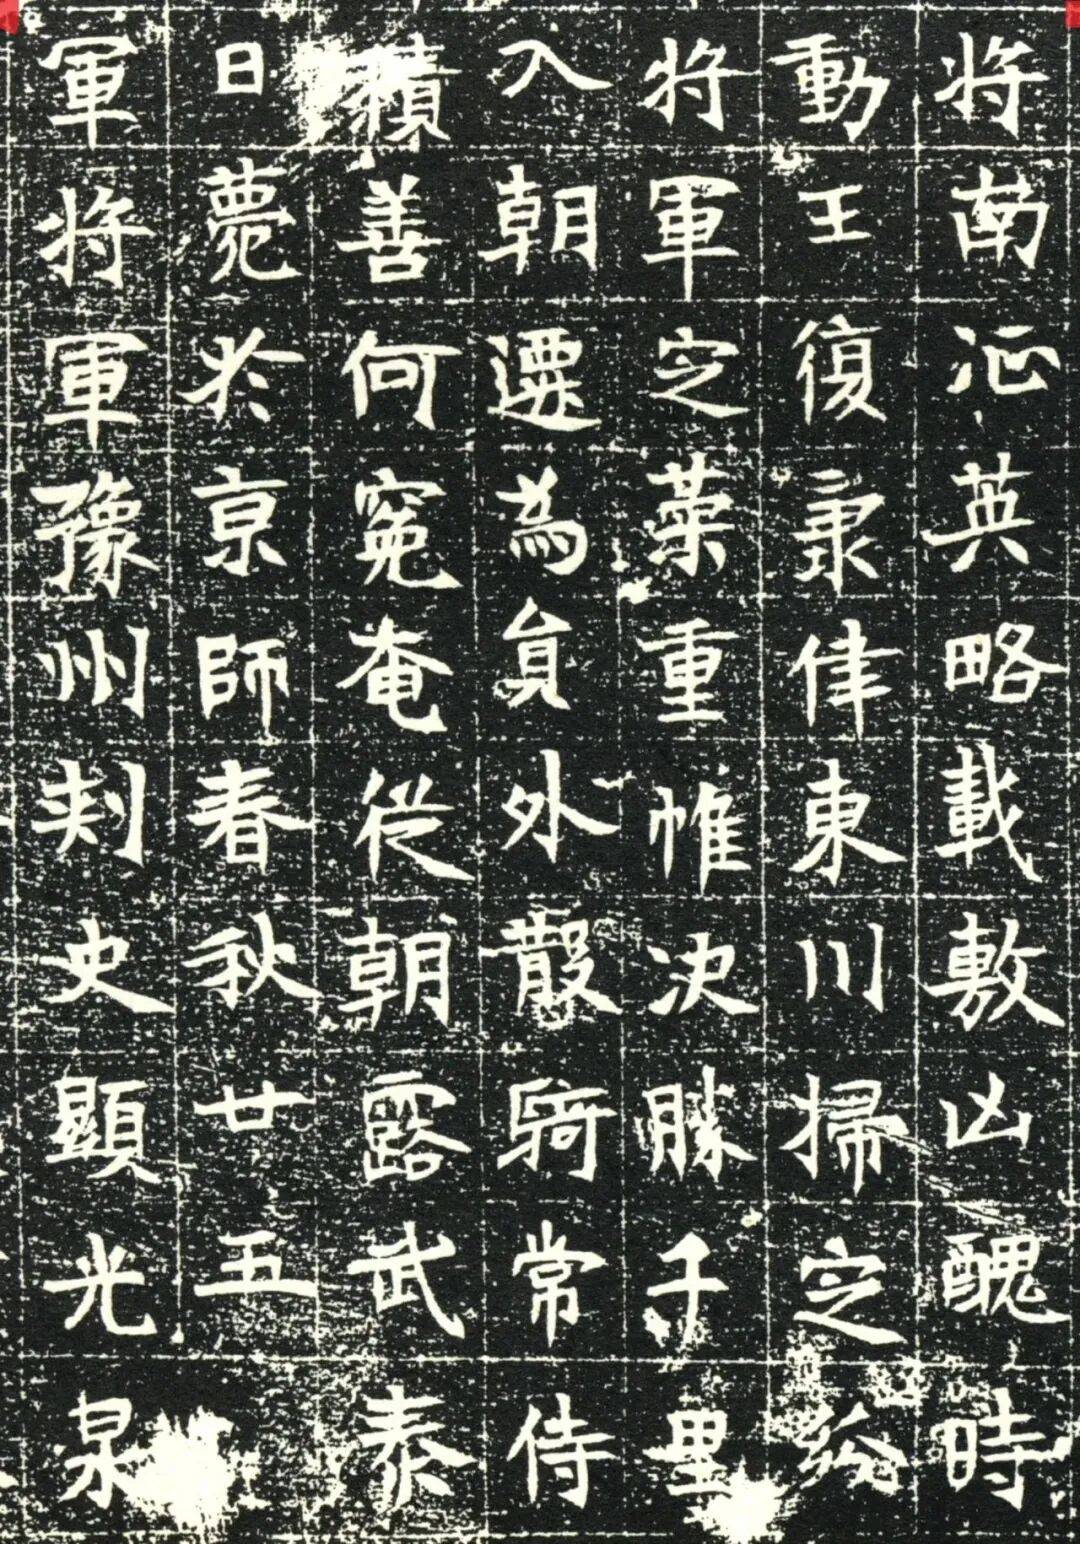 将南沚英略載敷凶醜時
動王復隶侓東川掃之紛
将軍之策重帷决勝千里
入朝遷為員外散騎常侍
積善何寃奄從朝露武泰
日薨於京師春秋廿五
軍将軍豫州刾史顯光泉